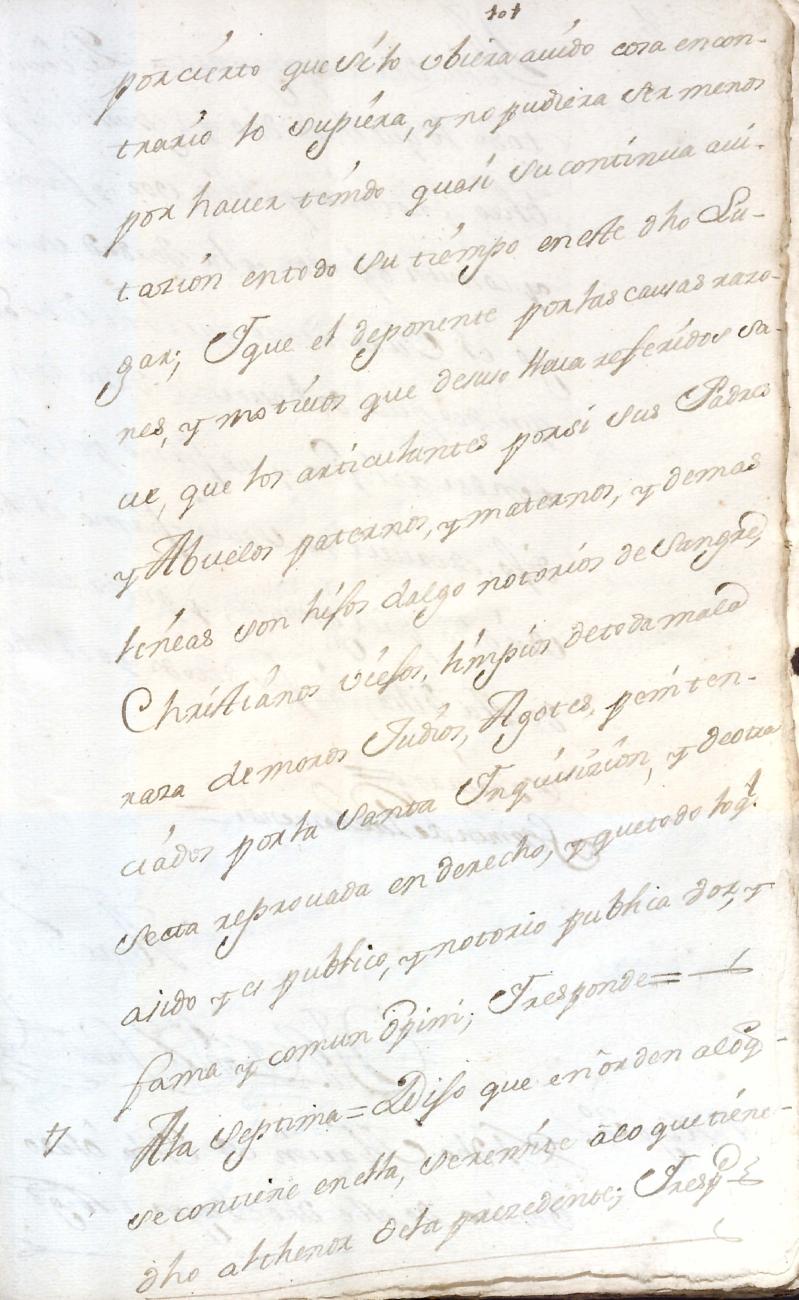 101
porcierto que si lo vbiera auido cosa encon-
trario lo supiera, y no pudiera ser menos
por hauer tenido quasi su continua aui-
tazion entodo su tiempo eneste dho Lu-
gar; Y que el deponente por las causas razo-
nes, y motiuos que desuso lleua referidos sa-
ue, que los articulantes porsi sus Padres
y Abuelos paternos, y maternos, y demas
lineas son hijos dalgo notorios de sangre,
Christianos viejos, limpios detoda mala
raza demoros Judios, Agotes, peniten-
ciados por la Santa Inquisizion, y deotra
secta reprouada en derecho, y quetodo loq.l
asido y es publico, y notorio publica voz, y
fama y comun opini; Y responde=
7 Ala Septima= Dijo que enorden aloq-
se contiene enella, seremite alo que tiene-
dho althenor dela prezedente; Y resp.de